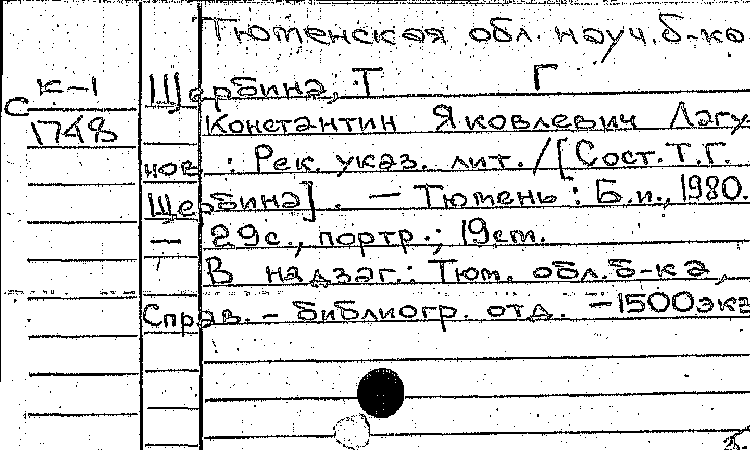 Тюменская обл. науч. б-ка
К-1
С
1748
Щербина, Т Г
Константин Яковлевич Лагу-
нов : Рек. указ. лит. / [Сост. Т.Г.
Щербина] . — Тюмень : Б.и., 1980.
— 29с., портр.; 19cm.
В надзаг.: Тюм. обл. б-ка,
Справ. - библиогр. отд. — 1500экз